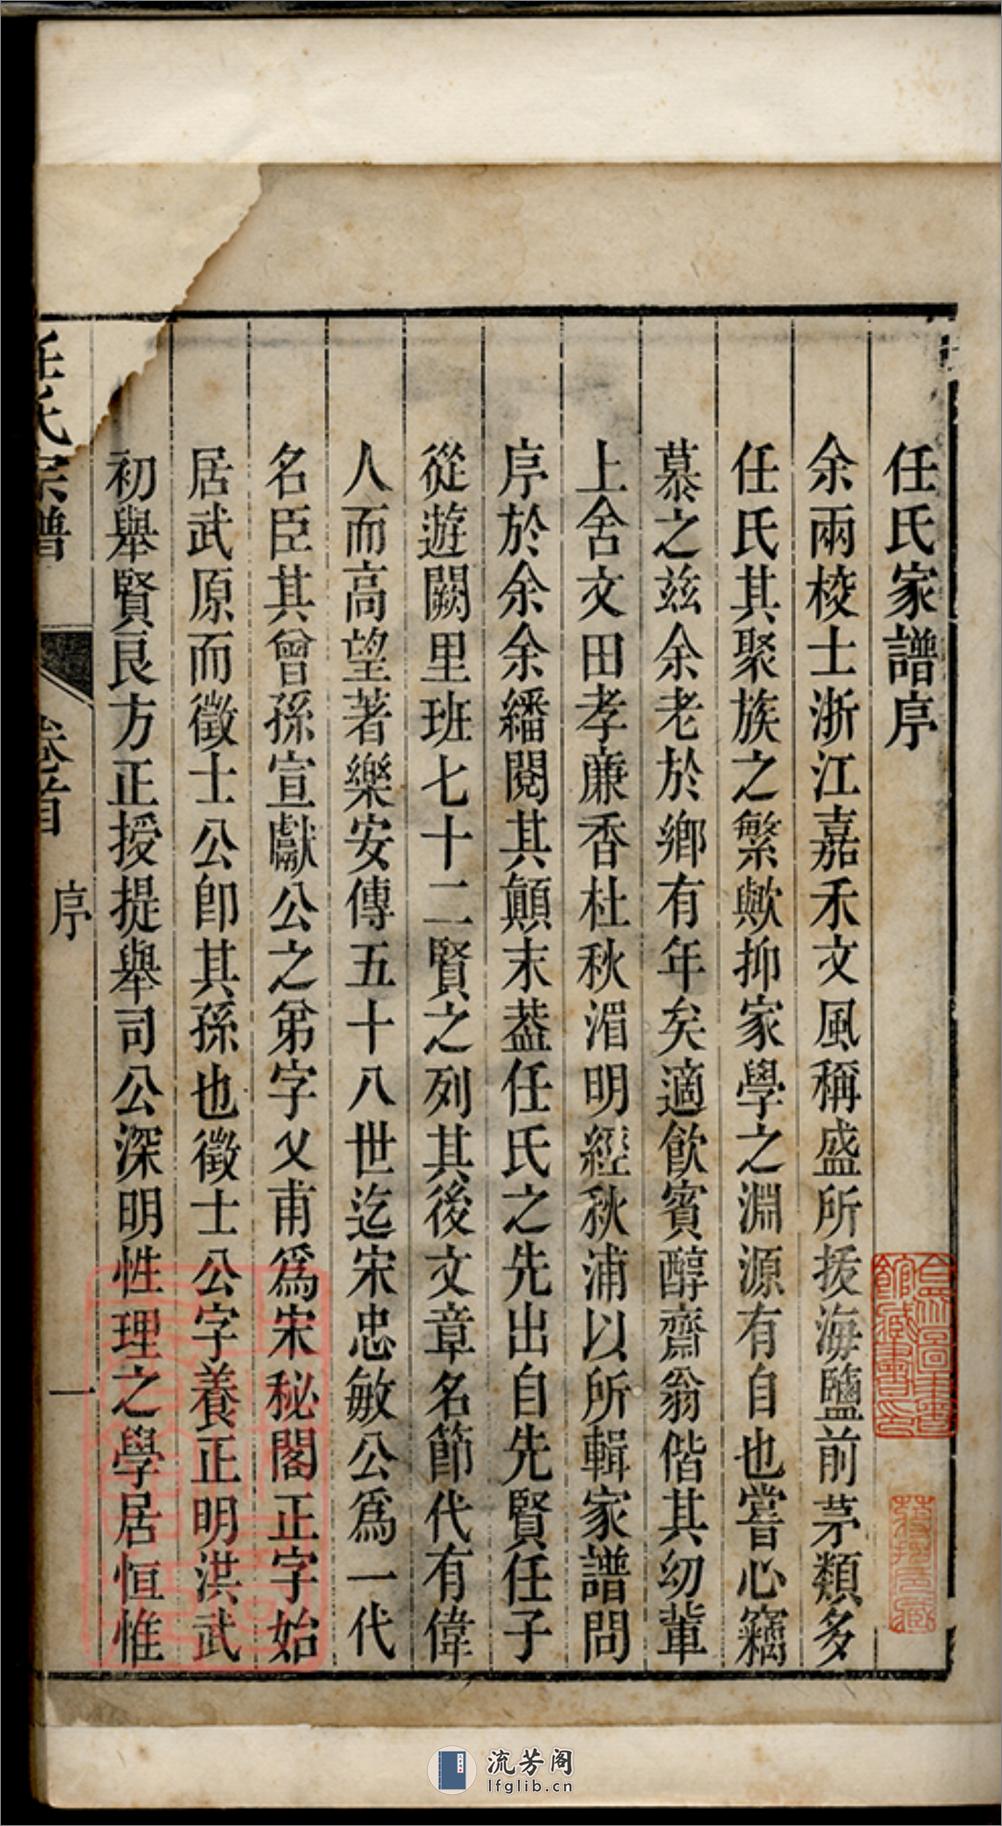 任氏家譜序
余兩校士浙江嘉禾文風稱盛所拔海鹽前茅類多
任氏其聚族之繁歟抑家學之淵源有自也嘗心竊
慕之茲余老於鄉有年矣適飲賓醇齋翁偕其幼輩
上舍文田孝廉香杜秋湄明經秋浦以所輯家譜問
序於余余繙閱其顛末葢任氏之先出自先賢任子
從遊闕里班七十二賢之列其後文章名節代有偉
人而高望著樂安傳五十八世迄宋忠敏公爲一代
名臣其曾孫宣獻公之弟字父甫爲宋秘閣正字始
居武原而徵士公卽其孫也徵士公字養正明洪武
初舉賢良方正授提舉司公深明性理之學居恒惟
任氏宗譜
卷首
序
一
流芳阁
lfglib.cn